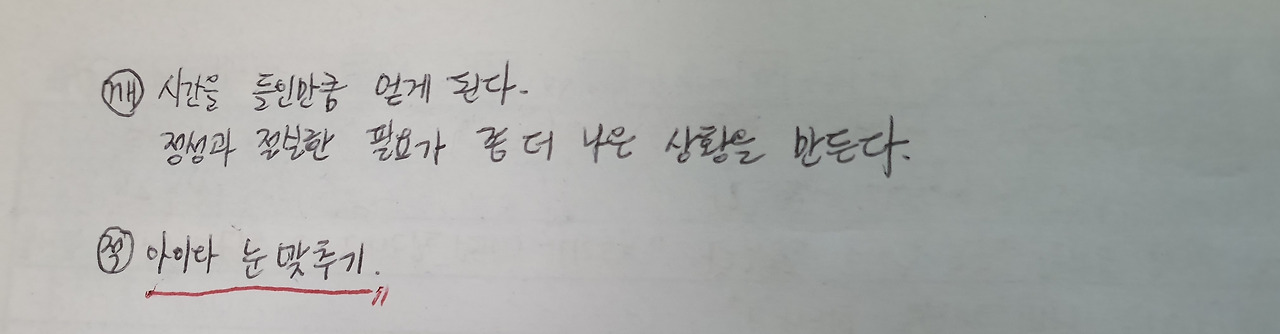 깨 시간을 들인만큼 얻게 된다.
정성과 절실한 필요가 좀 더 나은 상황을 만든다.
적 아이와 눈 맞추기.